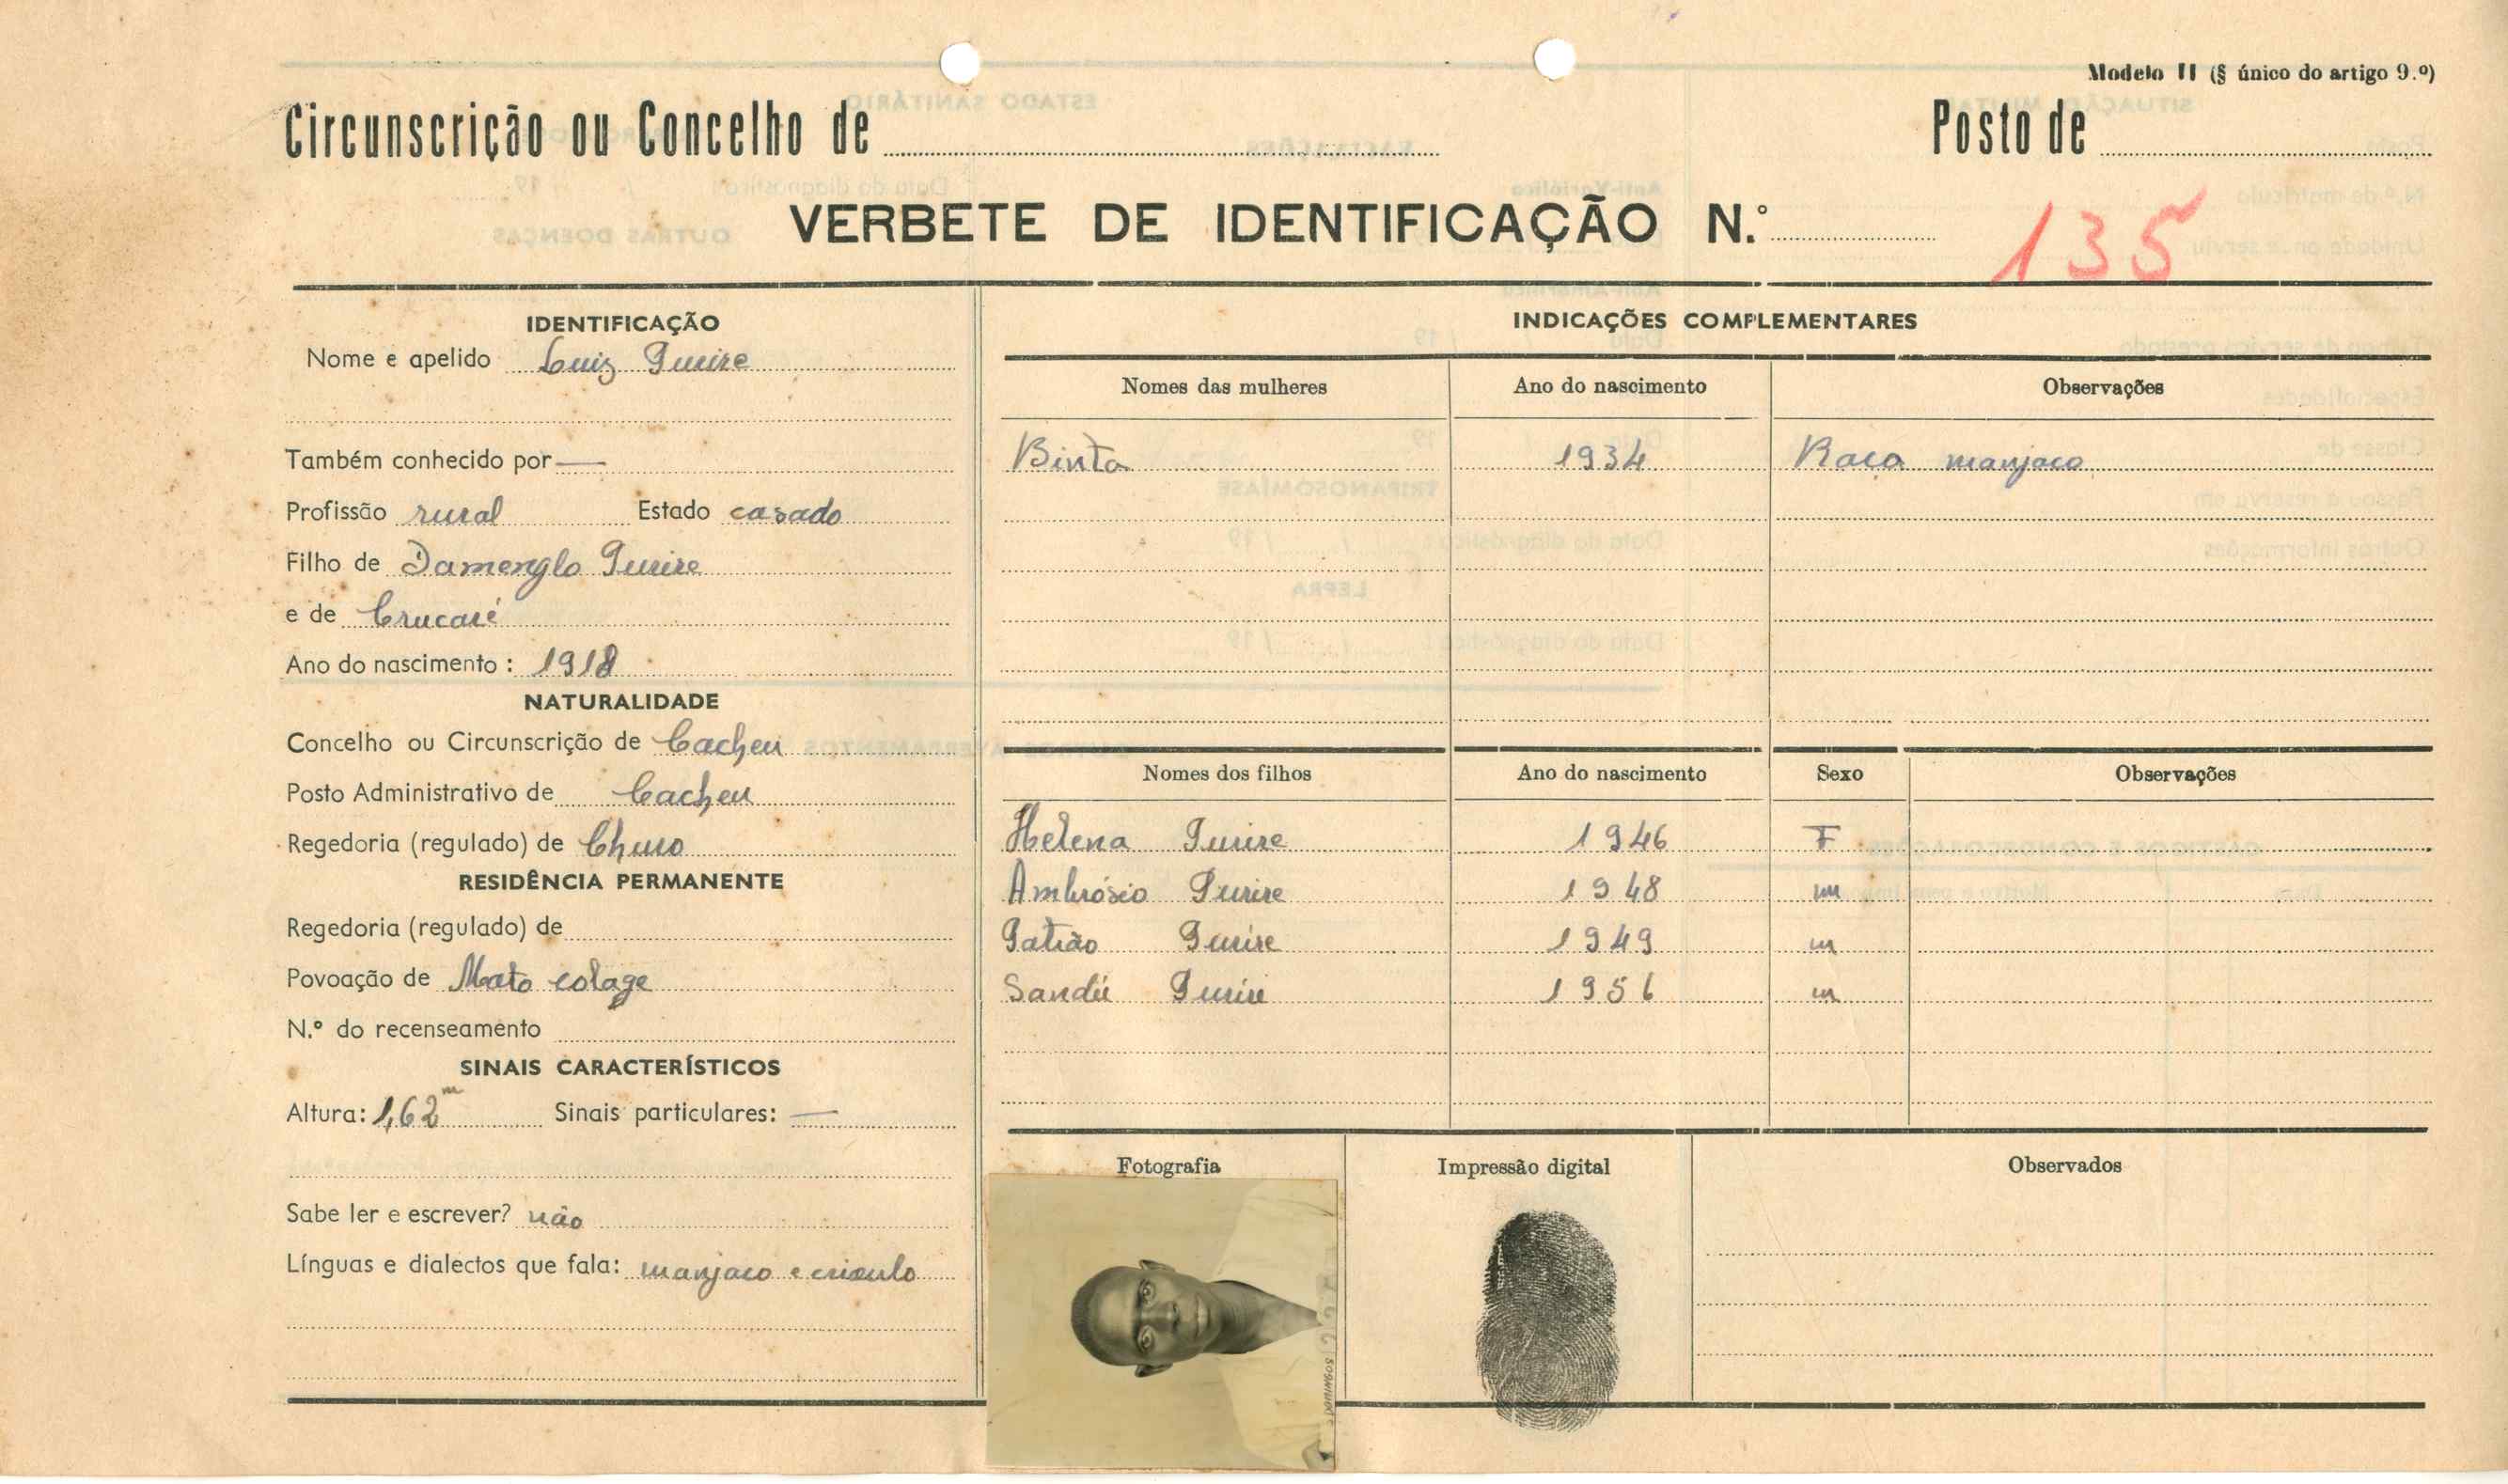 Modelo II (§ único do artigo 9.º)
Circunscrição ou Concelho de
Posto de
VERBETE DE IDENTIFICAÇÃO N.º
135
IDENTIFICAÇÃO
Nome e apelido Luiz
Também conhecido por —
Profissão rural Estado casado
Filho de
e de
Ano do nascimento : 1918
NATURALIDADE
Concelho ou Circunscrição de Cacheu
Posto Administrativo de Cacheu
Regedoria (regulado) de Churo
RESIDÊNCIA PERMANENTE
Regedoria (regulado) de
Povoação de Mato
N.º do recenseamento
SINAIS CARACTERÍSTICOS
Altura: 1,62m Sinais particulares: —
Sabe ler e escrever? não
Línguas e dialectos que fala: manjaco e crioulo
INDICAÇÕES COMPLEMENTARES
Nomes das mulheres Ano do nascimento Observações
Binta 1934 Raça manjaco
Nomes dos filhos Ano do nascimento Sexo Observações
Helena 1946 F
Ambrósio 1948 m
1949 m
1956 m
Fotografia Impressão digital Observados